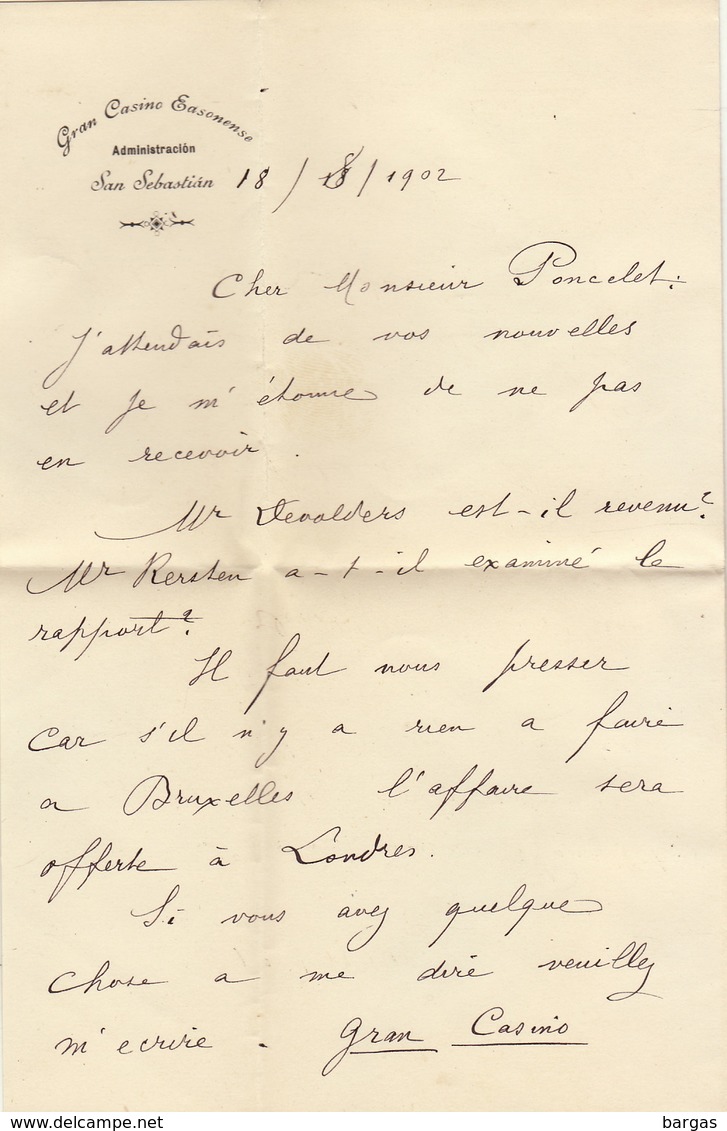 Gran Casino Easonense
Administración
San Sebastián 18 / 8 / 1902
Cher Monsieur Poncelet:
J'attendais de vos nouvelles
et je m'étonne de ne pas
en recevoir.
Mr Devolders est-il revenu?
Mr Kersten a-t-il examiné le
rapport?
Il faut nous presser
car s'il n'y a rien a faire
a Bruxelles l'affaire sera
offerte à Londres.
Si vous avez quelque
chose a me dire veuillez
m'ecrire. Gran Casino
bargas